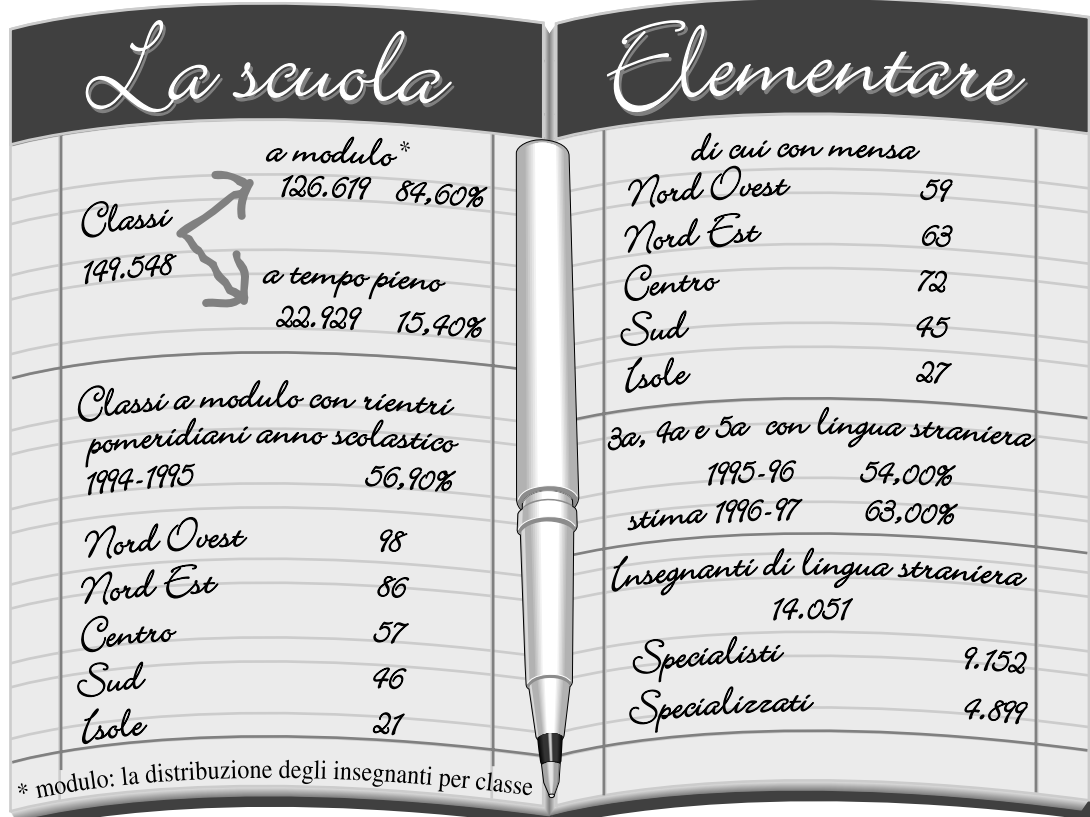 La scuola Elementare
a modulo*
126.619 84,60%
Classi
149.548
a tempo pieno
22.929 15,40%
Classi a modulo con rientri
pomeridiani anno scolastico
1994-1995 56,90%
Nord Ovest 98
Nord Est 86
Centro 57
Sud 46
Isole 21
* modulo: la distribuzione degli insegnanti per classe
di cui con mensa
Nord Ovest 59
Nord Est 63
Centro 72
Sud 45
Isole 27
3a, 4a e 5a con lingua straniera
1995-96 54,00%
stima 1996-97 63,00%
Insegnanti di lingua straniera
14.051
Specialisti 9.152
Specializzati 4.899